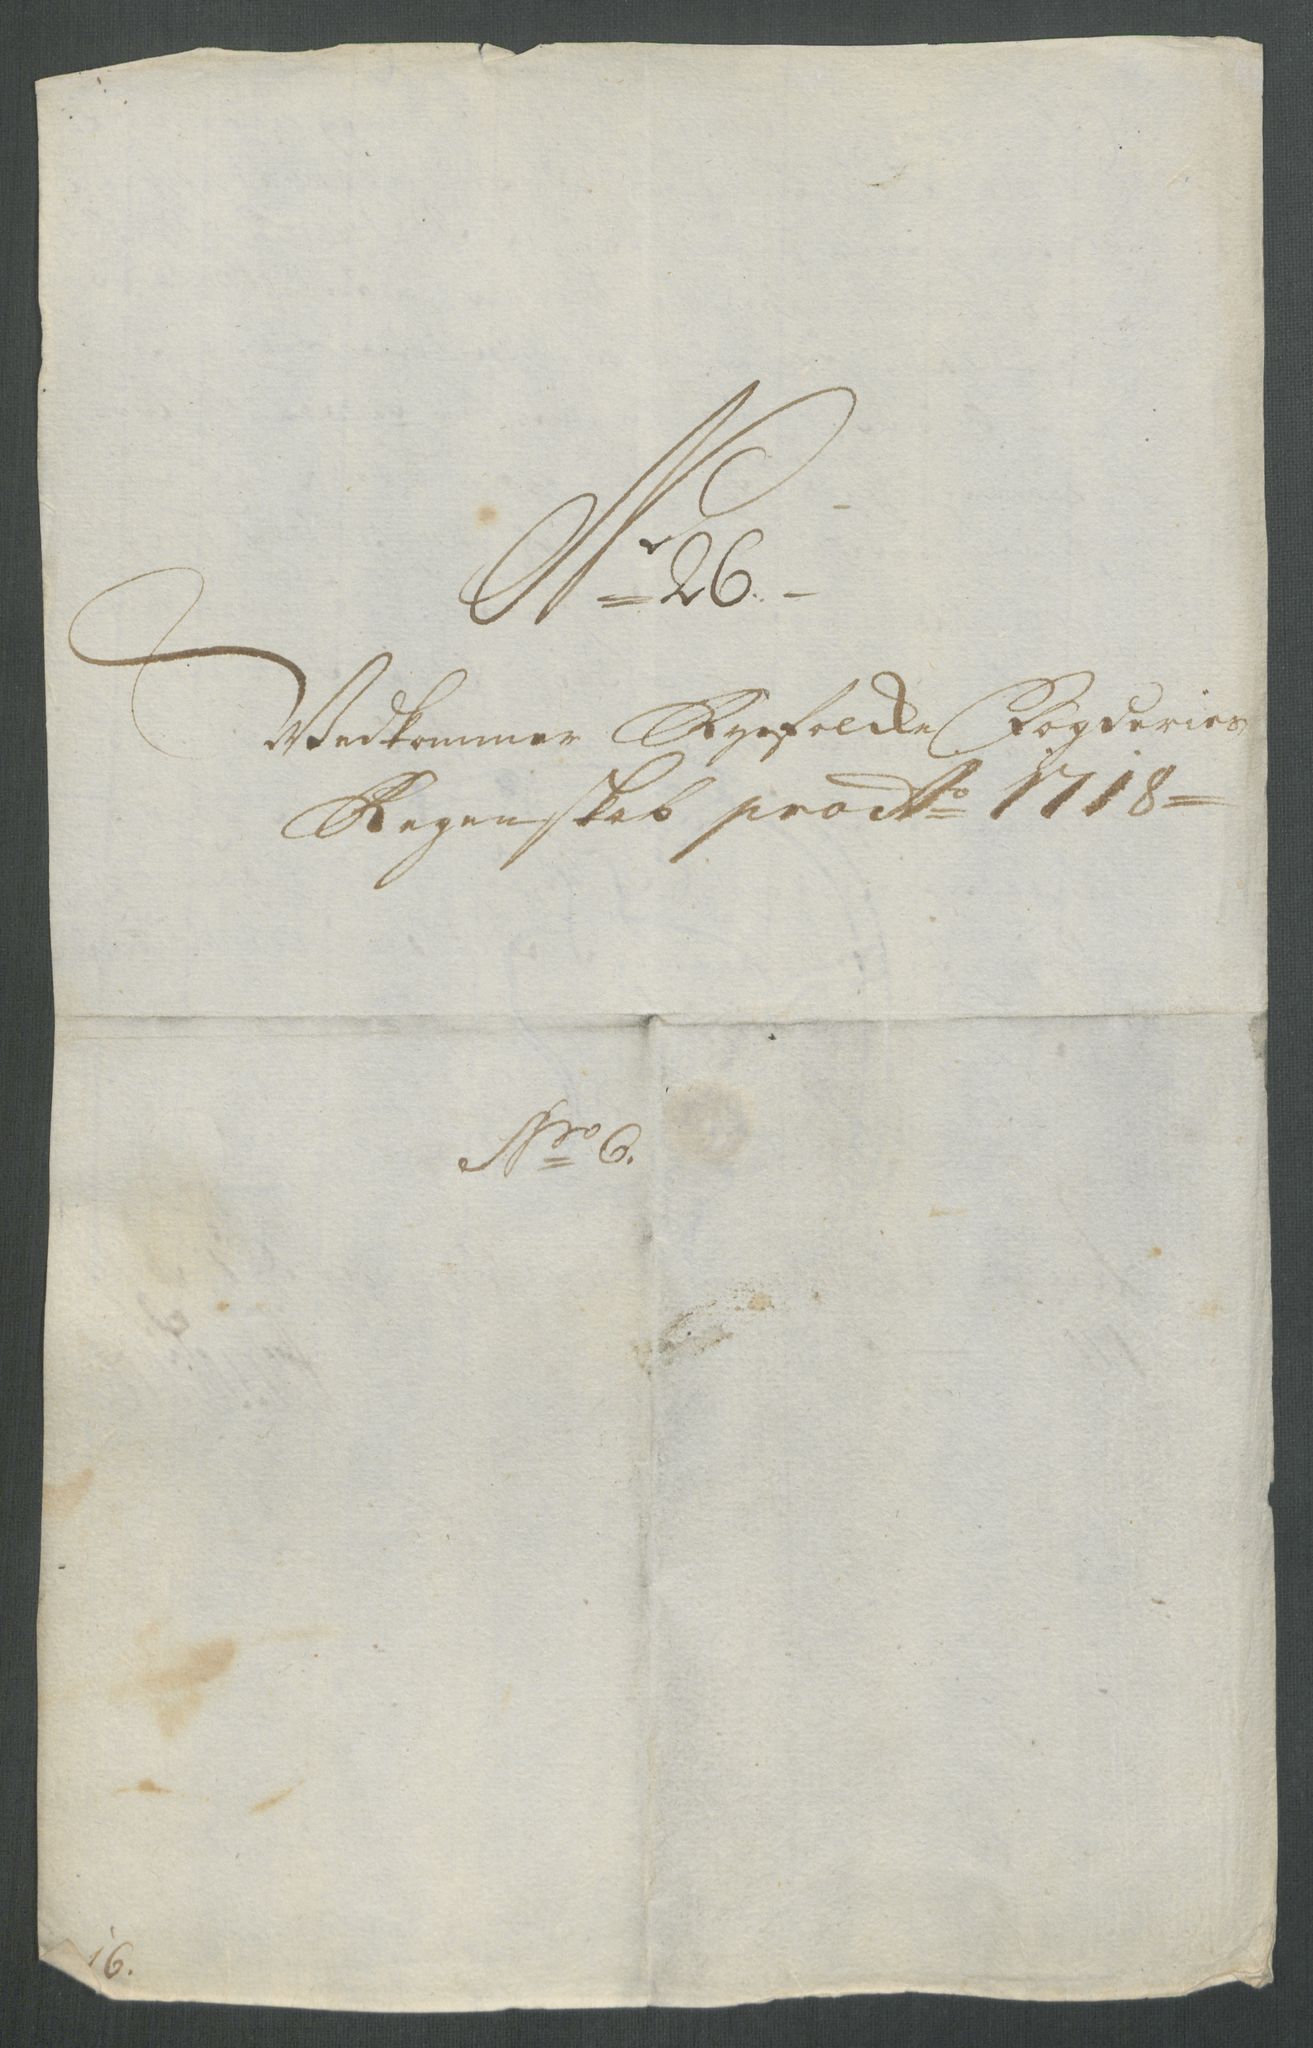 N 26.
Vedkommer Ryefolcke Fogderies
Regenskab pro Ao 1718
Nro 6.
16.